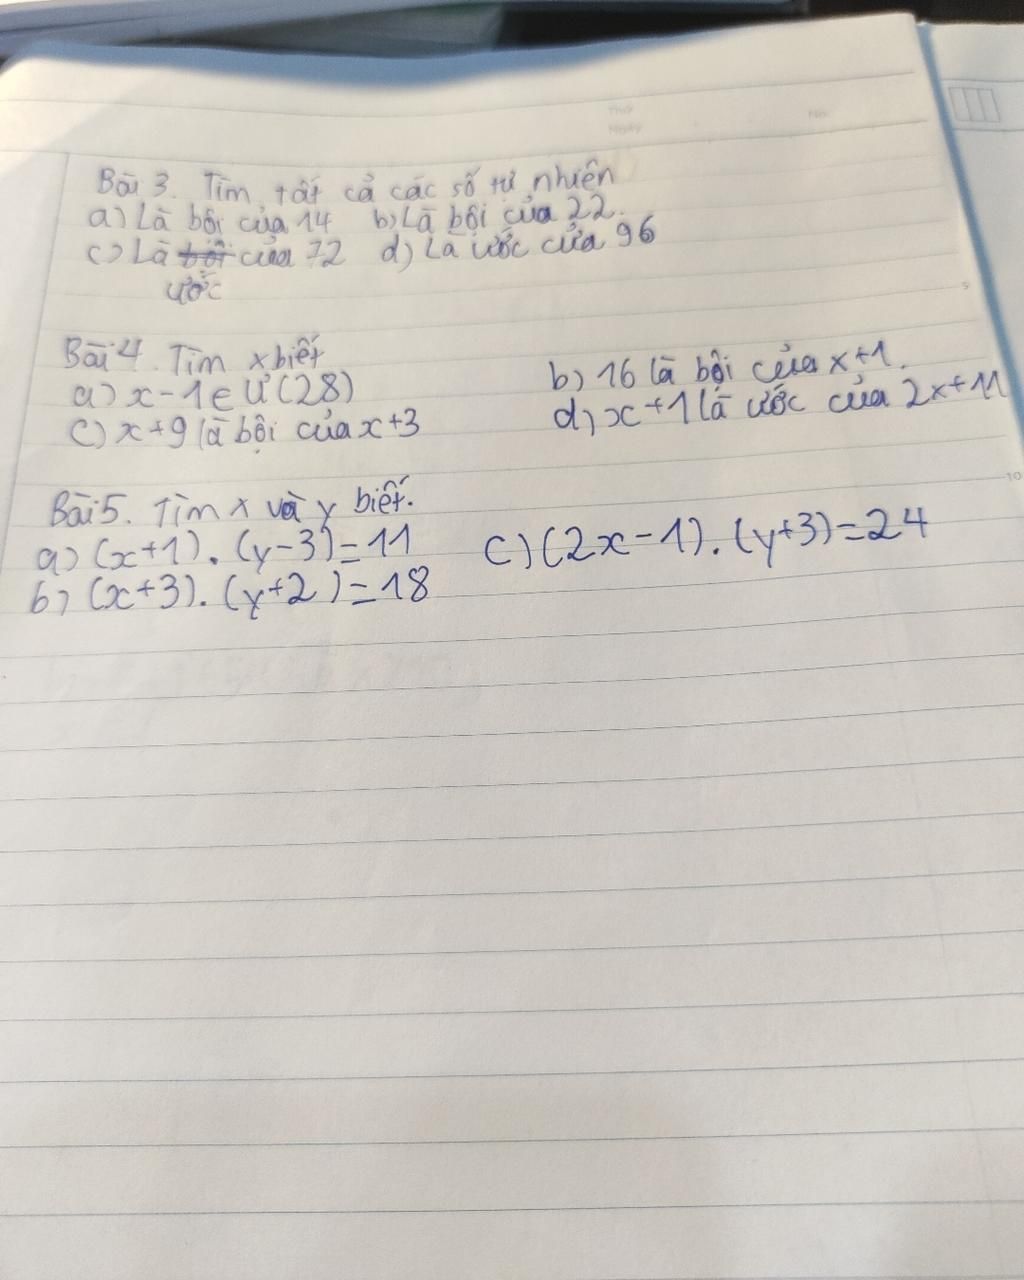 Thứ
Ngày
No.
Bài 3. Tìm tất cả các số tự nhiên
a) Là bội của 14 b) Là bội của 22.
c) Là bội của 72 d) Là ước của 96
ước
Bài 4. Tìm x biết
a) x-1 ∈ Ư(28) b) 16 là bội của x+1.
c) x+9 là bội của x+3 d) x+1 là ước của 2x+11
Bài 5. Tìm x và y biết.
a) (x+1).(y-3)=11 c) (2x-1).(y+3)=24
b) (x+3).(y+2)=18
5
10